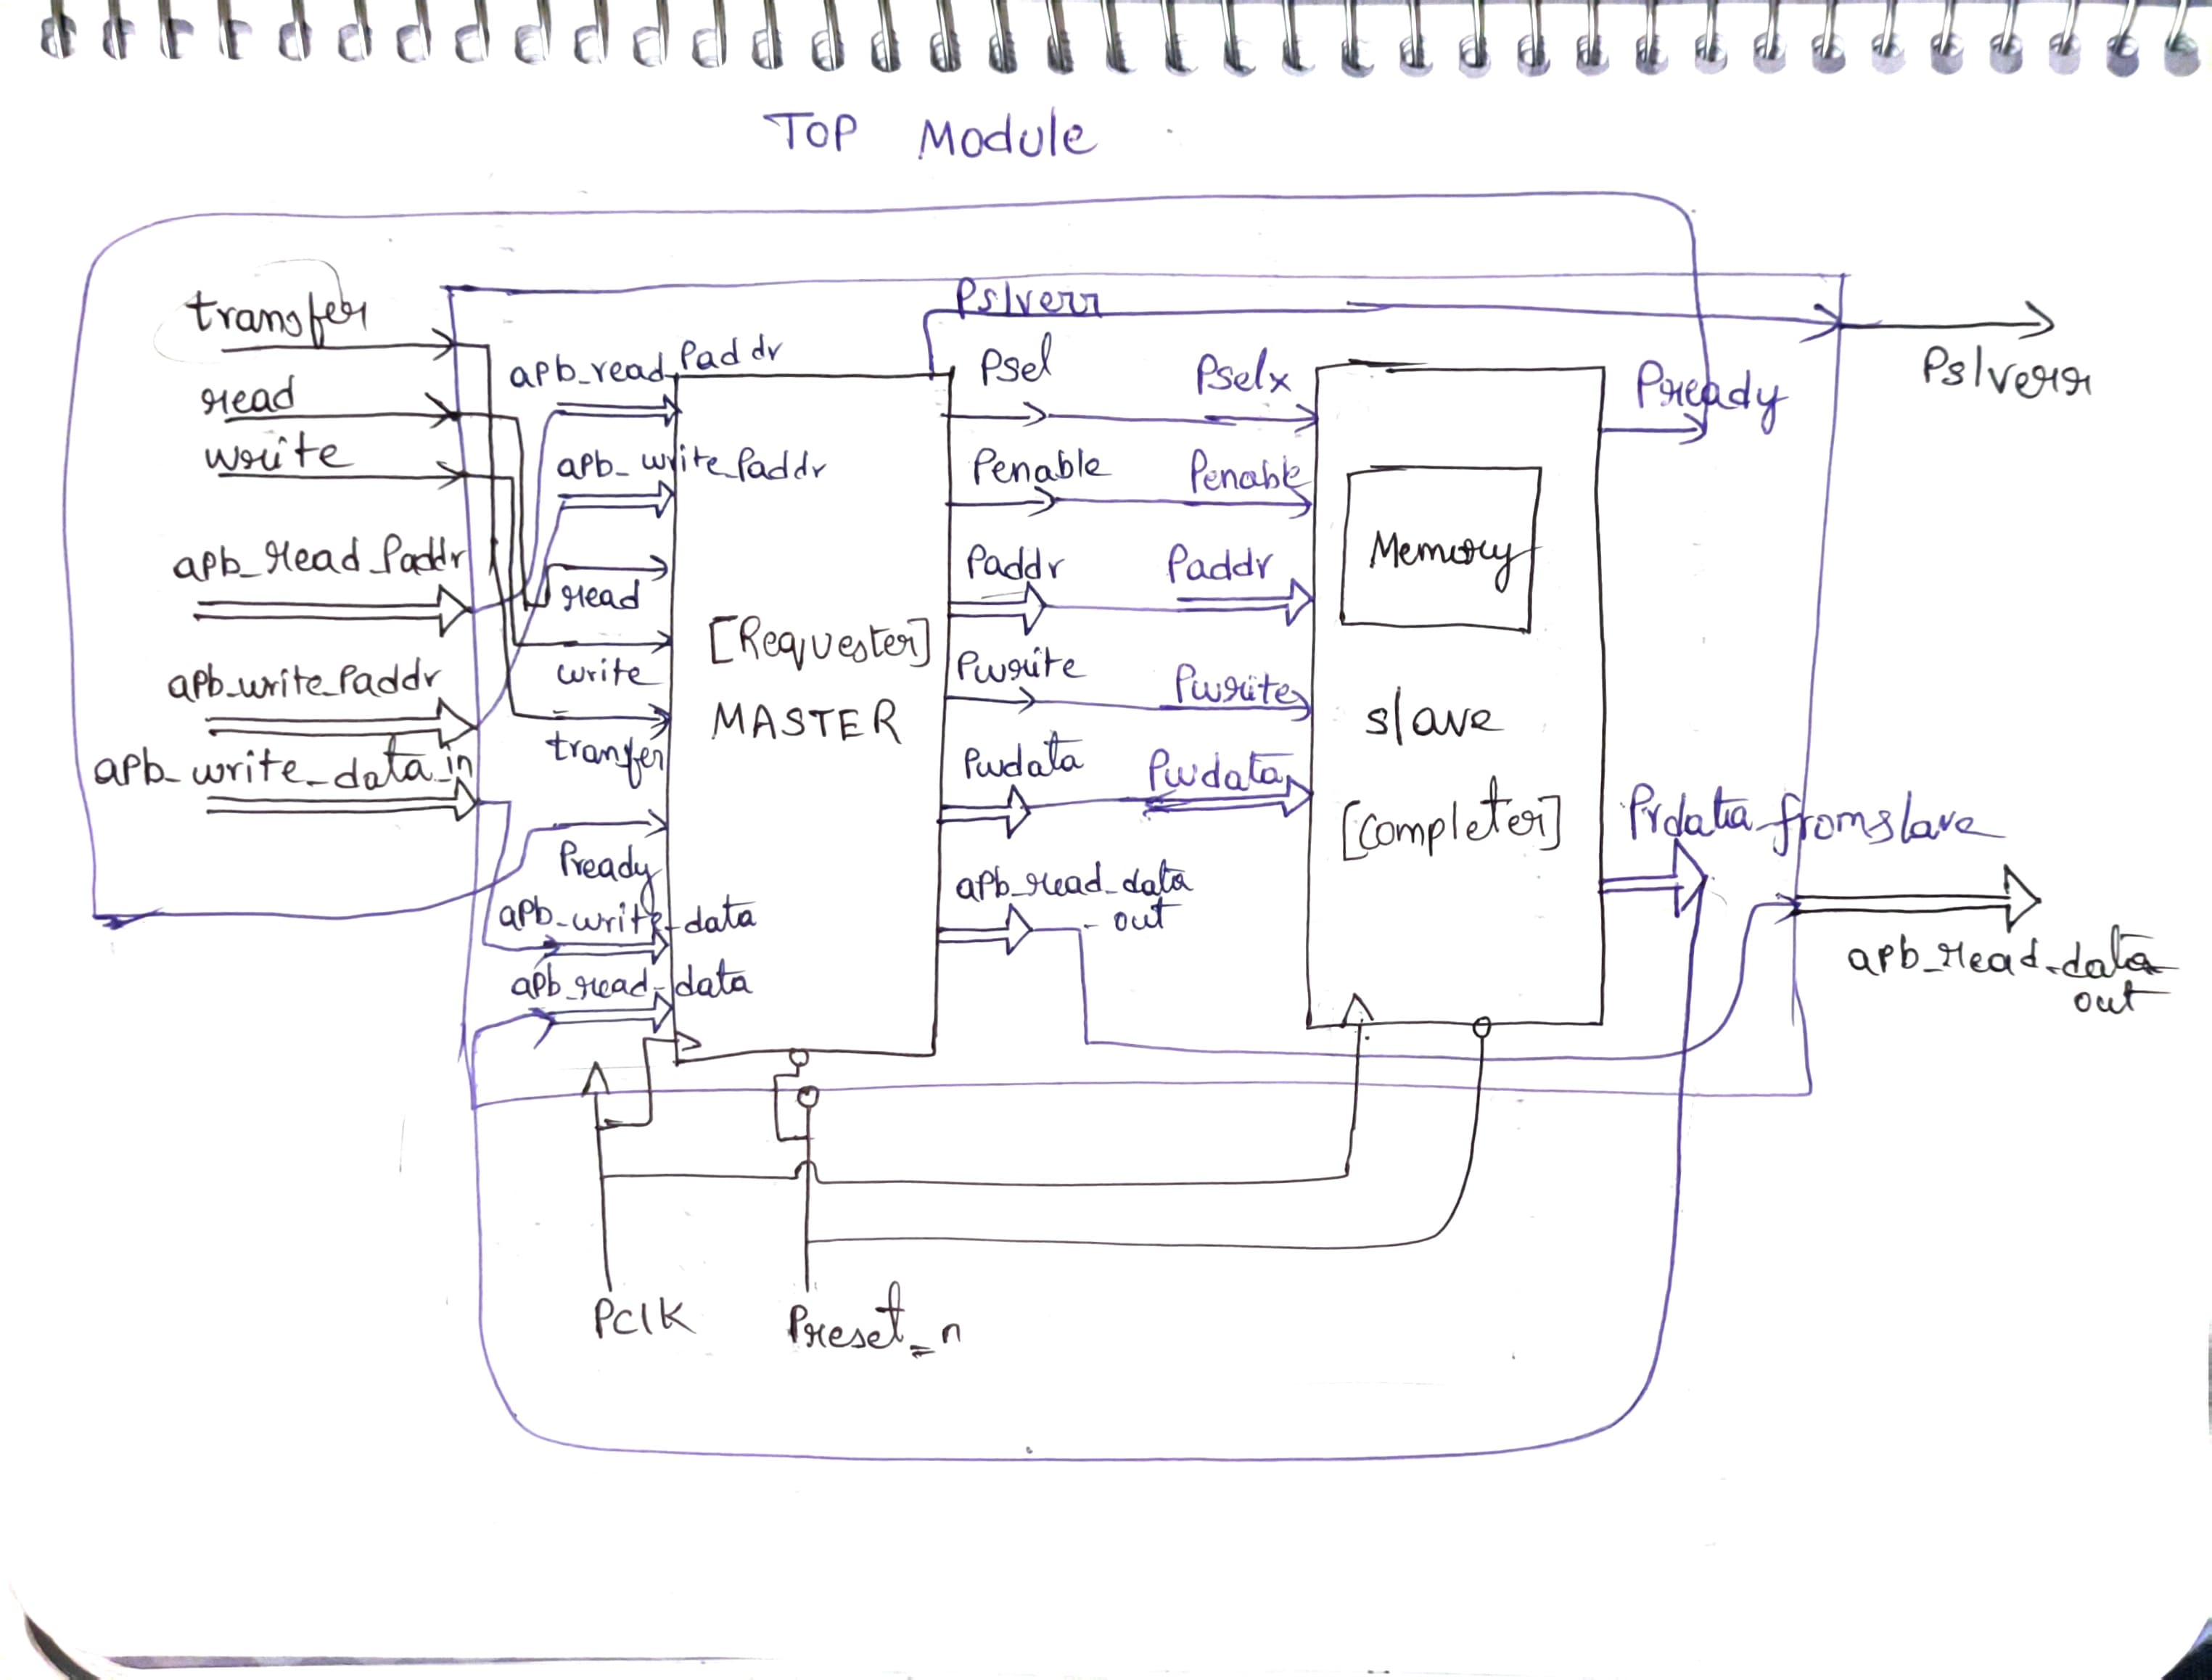 TOP Module
transfer
read
write
apb_read_Paddr
apb_write_Paddr
apb_write_data_in
apb_read_Paddr
apb_write_Paddr
read
write
tranfer
Pready
apb_write_data
apb_read_data
[Requester]
MASTER
Pslverr
Psel
Penable
Paddr
Pwrite
Pwdata
apb_read_data
- out
Pselx
Penable
Paddr
Pwrite
Pwdata
Memory
slave
[Completer]
Pready
Prdata_fromslave
Pslverr
apb_read_data
out
Pclk
Preset_n